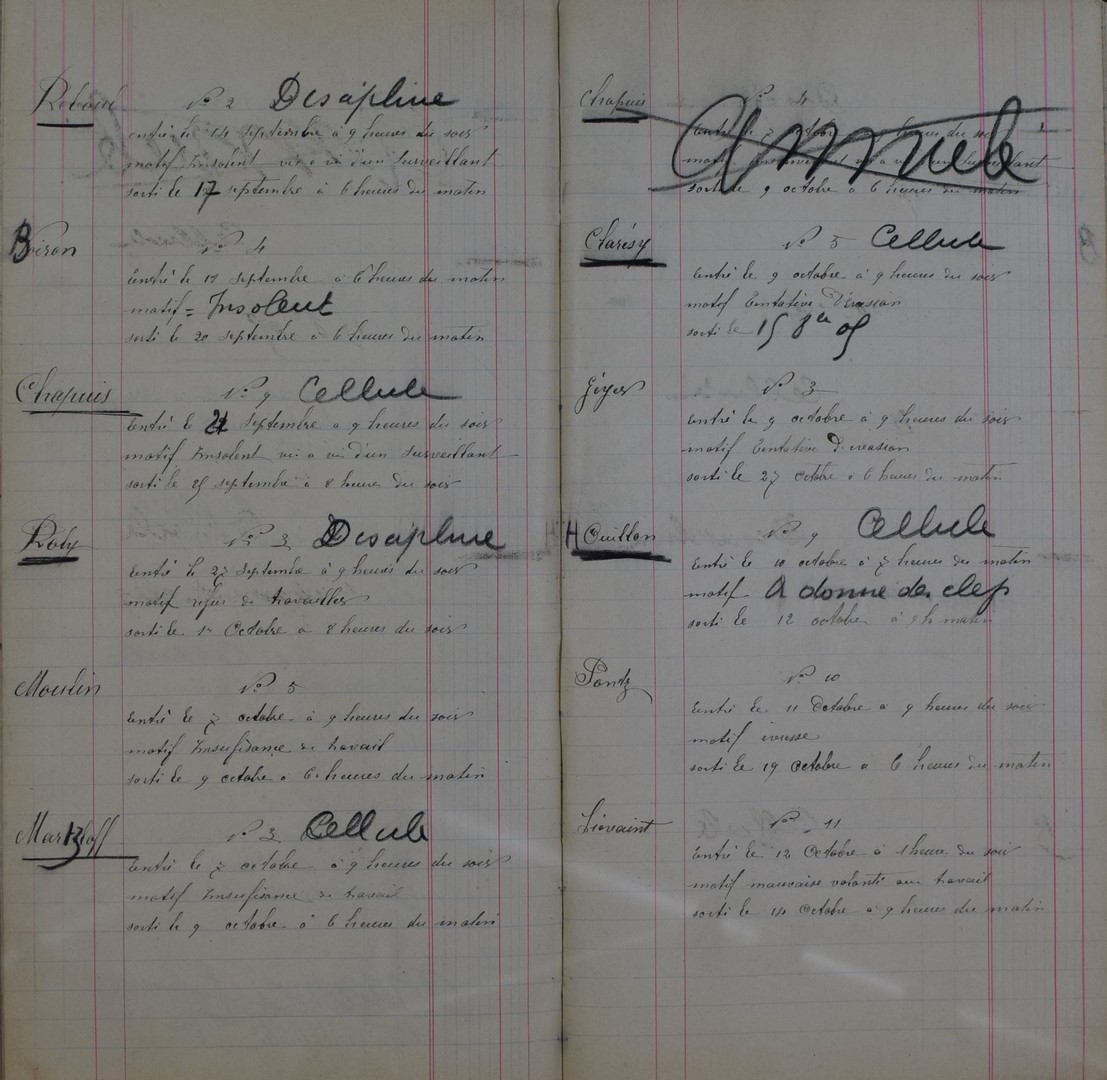 Reboul N° 2 Discipline
entré le 14 septembre à 9 heures du soir
motif Insolent vis a vis d'un surveillant
sorti le 17 septembre à 6 heures du matin
Boiron N° 4
Entré le 17 septembre à 6 heures du matin
motif = Insolent
sorti le 20 septembre à 6 heures du matin
Chapuis N° 9 Cellule
Entré le 21 septembre à 9 heures du soir
motif Insolent vis a vis d'un surveillant
sorti le 25 septembre à 8 heures du soir
Roty N° 3 Discipline
Entré le 27 septembre à 9 heures du soir
motif refus de travailler
sorti le 1er Octobre à 8 heures du soir
Moulin N° 5
Entré le 7 octobre à 9 heures du soir
motif Insufisame de travail
sorti le 9 octobre à 6 heures du matin
Martzloff N° 3 Cellule
Entré le 7 octobre à 9 heures du soir
motif Insufisame de travail
sorti le 9 octobre à 6 heures du matin
Chapuis N° 4
Entré le 7 octobre à 9 heures du soir
Annulé
motif vis a vis d'un surveillant
sorti le 9 octobre à 6 heures du matin
Clarésy N° 5 Cellule
Entré le 9 octobre à 9 heures du soir
motif Tentative d'évasion
sorti le 15 8bre 05
N° 3
Entré le 9 octobre à 9 heures du soir
motif Tentative d'evasion
sorti le 27 octobre à 6 heures du matin
H Ouillon N° 9 Cellule
Entré le 10 octobre à 7 heures du matin
motif A donné des clefs
sorti le 12 octobre à 9 h matin
Pantz N° 10
Entré le 11 Octobre à 9 heures du soir
motif ivresse
sorti le 19 Octobre à 6 heures du matin
Liévaint N° 11
Entré le 12 Octobre à 1 heure du soir
motif mauvaise volonté au travail
sorti le 14 Octobre à 9 heures du matin